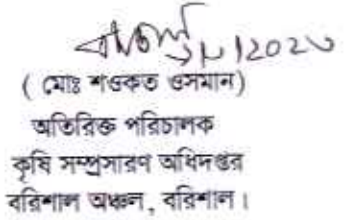 ( মোঃ শওকত ওসমান)
অতিরিক্ত পরিচালক
কৃষি সম্প্রসারণ অধিদপ্তর
বরিশাল অঞ্চল, বরিশাল।